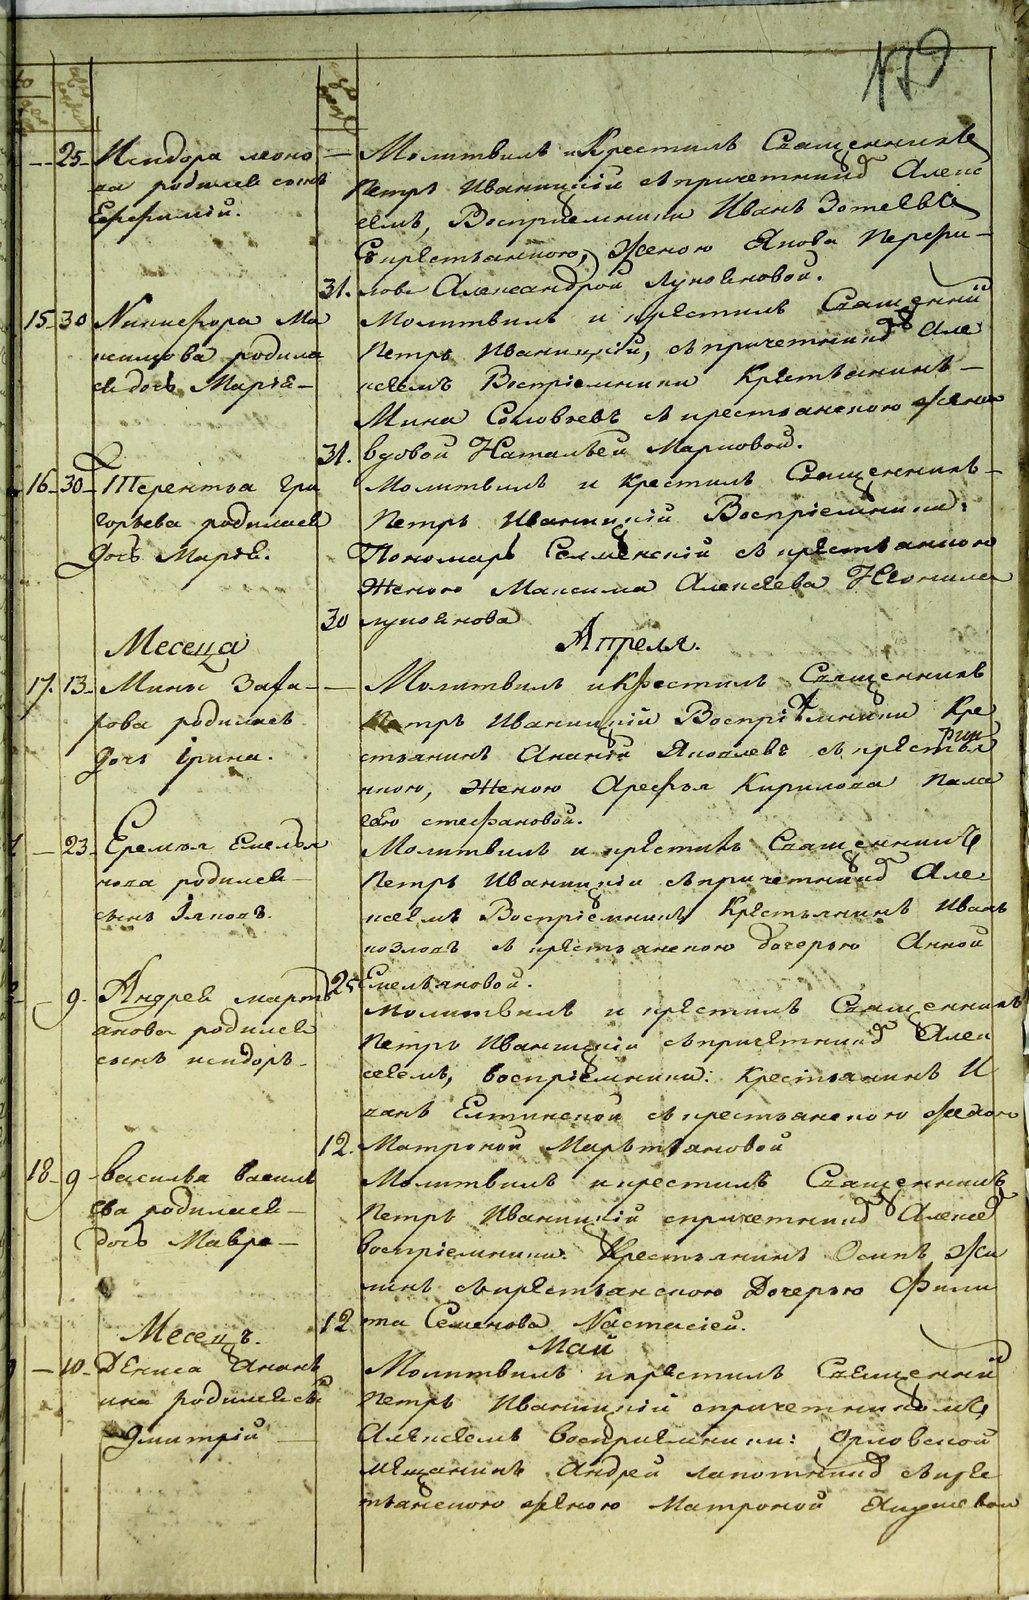 179
25 Исидора леоно
ва родился сынъ
Евфимій.
Молитвилъ и Крестилъ Священникъ
Петръ Иваницкій съ причетником Алекс
еемъ, Восприемники Иванъ Зотеевъ
Съ крестьянкою, Женою Якова Перфи-
31. лова Александрой Лукояновой.
15 30 Никифора Ма
ксимова родила
ся дочь Марія
Молитвилъ и крѣстилъ Священни
Петръ Иваницкій, съ причетником Але
ксеемъ Воспріемники Крѣстьянинъ
Мина Соловьевъ съ крестьянскою женою
31. вдовой Натальей Марковой.
16 30 Терентья Гри
горьева родилась
дочь Марія.
Молитвилъ и крестилъ Священникъ
Петръ Иваницкій Воспріемники:
Пономарь Семенскій съ крѣстьянкою
Женою Максима Алексѣева Неонила
30 лукоянова
Месеца Апреля.
17. 13 Мины Заха
рова родилась
дочь Ірина.
Молитвилъ и Крестилъ Священникъ
Петръ Иваницкій Воспріемники Кре
стьянинъ Ананій Яковлевъ съ крѣстья
нкою, Женою Арефья Кирилова Пела
геею стефановой.
23 Еремья Емелья
нова родился
сынъ Іяковъ.
Молитвилъ и крѣстилъ Священникъ
Петръ Иваницкій съ причетником Але
ксеемъ Воспріемникъ Крѣстьянинъ Иванъ
козловъ съ крѣстьянскою дочерью Анной
25 Емельяновой.
9 Андрея марть
анова родился
сынъ исидоръ
Молитвилъ и крѣстилъ Священникъ
Петръ Иваницкій съ причетником Алек
сеемъ, воспріемники: Крестьянинъ И
ванъ съ крестьянскою женою
12. Матроной Мартьяновой
18 9 Василья василь
ева родилась
дочь Мавра
Молитвилъ и крестилъ Священникъ
Петръ Иваницкій с причетником Алексе
воспріемники Крестьянинъ Осипъ Жи
линъ съ крѣстьянскою Дочерью Фили
12 па Семенова Настасіей.
Месецъ. Май
10 Дениса Анань
ина родился сы
Дмитрій
Молитвилъ и крѣстилъ Священни
Петръ Иваницкій с причетникомъ
Алексеемъ восприемники: Орловской
мѣщанинъ Андрей лапотников съ крѣс
тьянскою женою Матроной